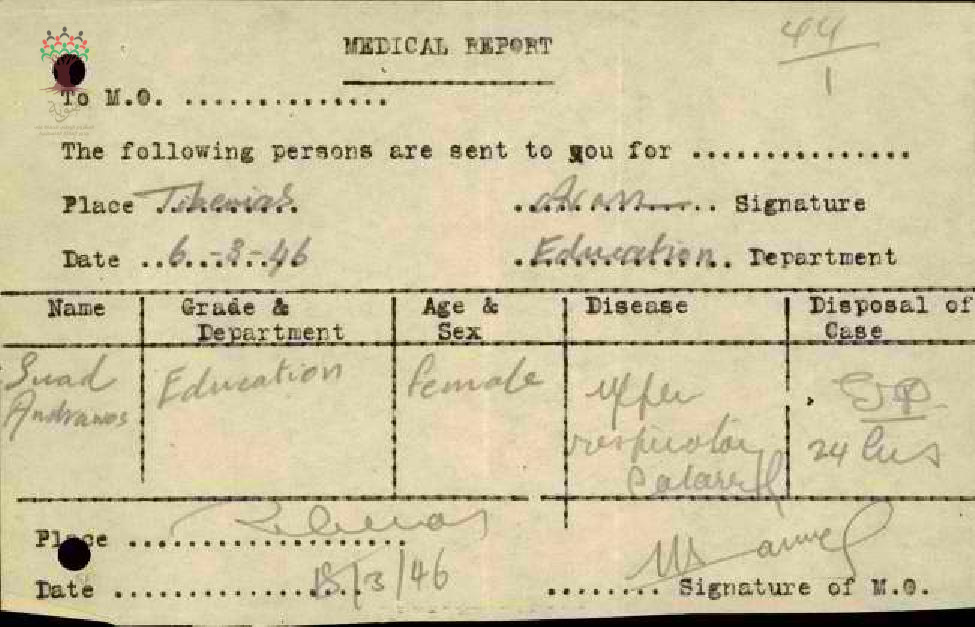 44
1
MEDICAL REPORT
To M.O. ..............
The following persons are sent to you for ...............
Place Tiberias ............... Signature
Date 6-3-46 Education Department
Name Grade & Department Age & Sex Disease Disposal of Case
Suad Andrawos Education Female Upper respiratory Catarrh 24 hrs
Place Tiberias
Date 18/3/46 ........ Signature of M.O.